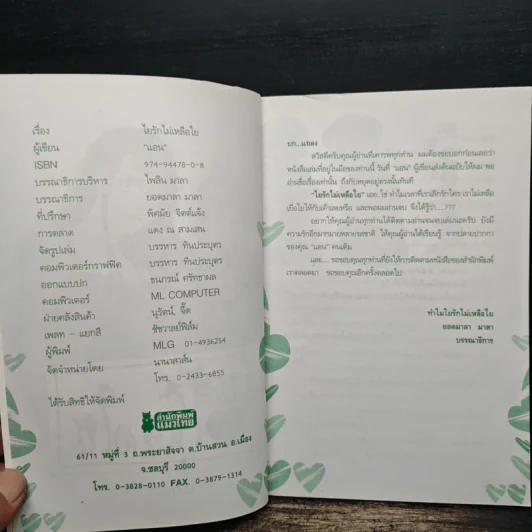 เรื่อง ไยรักไม่เหลือใย
ผู้เขียน "แอน"
ISBN 974-94478-0-8
บรรณาธิการบริหาร ไพลิน มาลา
บรรณาธิการ ยอดมาลา มาลา
ที่ปรึกษา พิศมัย จิตต์แจ้ง
การตลาด แดง ณ สามเสน
จัดรูปเล่ม บรรหาร ทินประบุตร
คอมพิวเตอร์กราฟฟิค บรรหาร ทินประบุตร
ออกแบบปก ธนภรณ์ ศรัทธาผล
คอมพิวเตอร์ ML COMPUTER
ฝ่ายคลังสินค้า นุรัตน์, จี๊ด
เพลท - แยกสี ชัชวาลย์ฟิล์ม
ผู้พิมพ์ MLG 01-4936254
จัดจำหน่ายโดย นานาสาส์น
โทร. 0-2433-6855
ได้รับสิทธิให้จัดพิมพ์
สำนักพิมพ์
แมวไทย
61/11 หมู่ที่ 3 ถ.พระยาสัจจา ต.บ้านสวน อ.เมือง
จ.ชลบุรี 20000
โทร. 0-3828-0110 FAX. 0-3879-1314
บก...แถลง
สวัสดีครับคุณผู้อ่านที่เคารพทุกท่าน ผมต้องขอบอกก่อนเลยว่า
หนังสือเล่มที่อยู่ในมือของท่านนี้ วันที่ "แอน" ผู้เขียนส่งต้นฉบับให้ผม พอ
อ่านชื่อเรื่องเท่านั้น ถึงกับหยุดอยู่ตรงนั้นทันที
"ไยรักไม่เหลือใย" เออ..ใช่ ทำไมเวลาที่เราเลิกรักใคร เราไม่เหลือ
เยื่อใยให้กับเค้าเลยหรือ และพอผมอ่านจบ จึงได้รู้ว่า....???
อยากให้คุณผู้อ่านทุกท่านได้ติดตามอ่านจนจบเล่มนะครับ ยังมี
ความรักอีกมากมายหลายรสชาติ ให้คุณผู้อ่านได้เรียนรู้ จากปลายปากกา
ของคุณ "แอน" คนเดิม
และ... ขอขอบคุณทุกท่านที่ยังให้การติดตามหนังสือของสำนักพิมพ์
เราตลอดมา ขอขอบคุณอีกครั้งตลอดไป
ทำไมไยรักไม่เหลือใย
ยอดมาลา มาลา
บรรณาธิการ